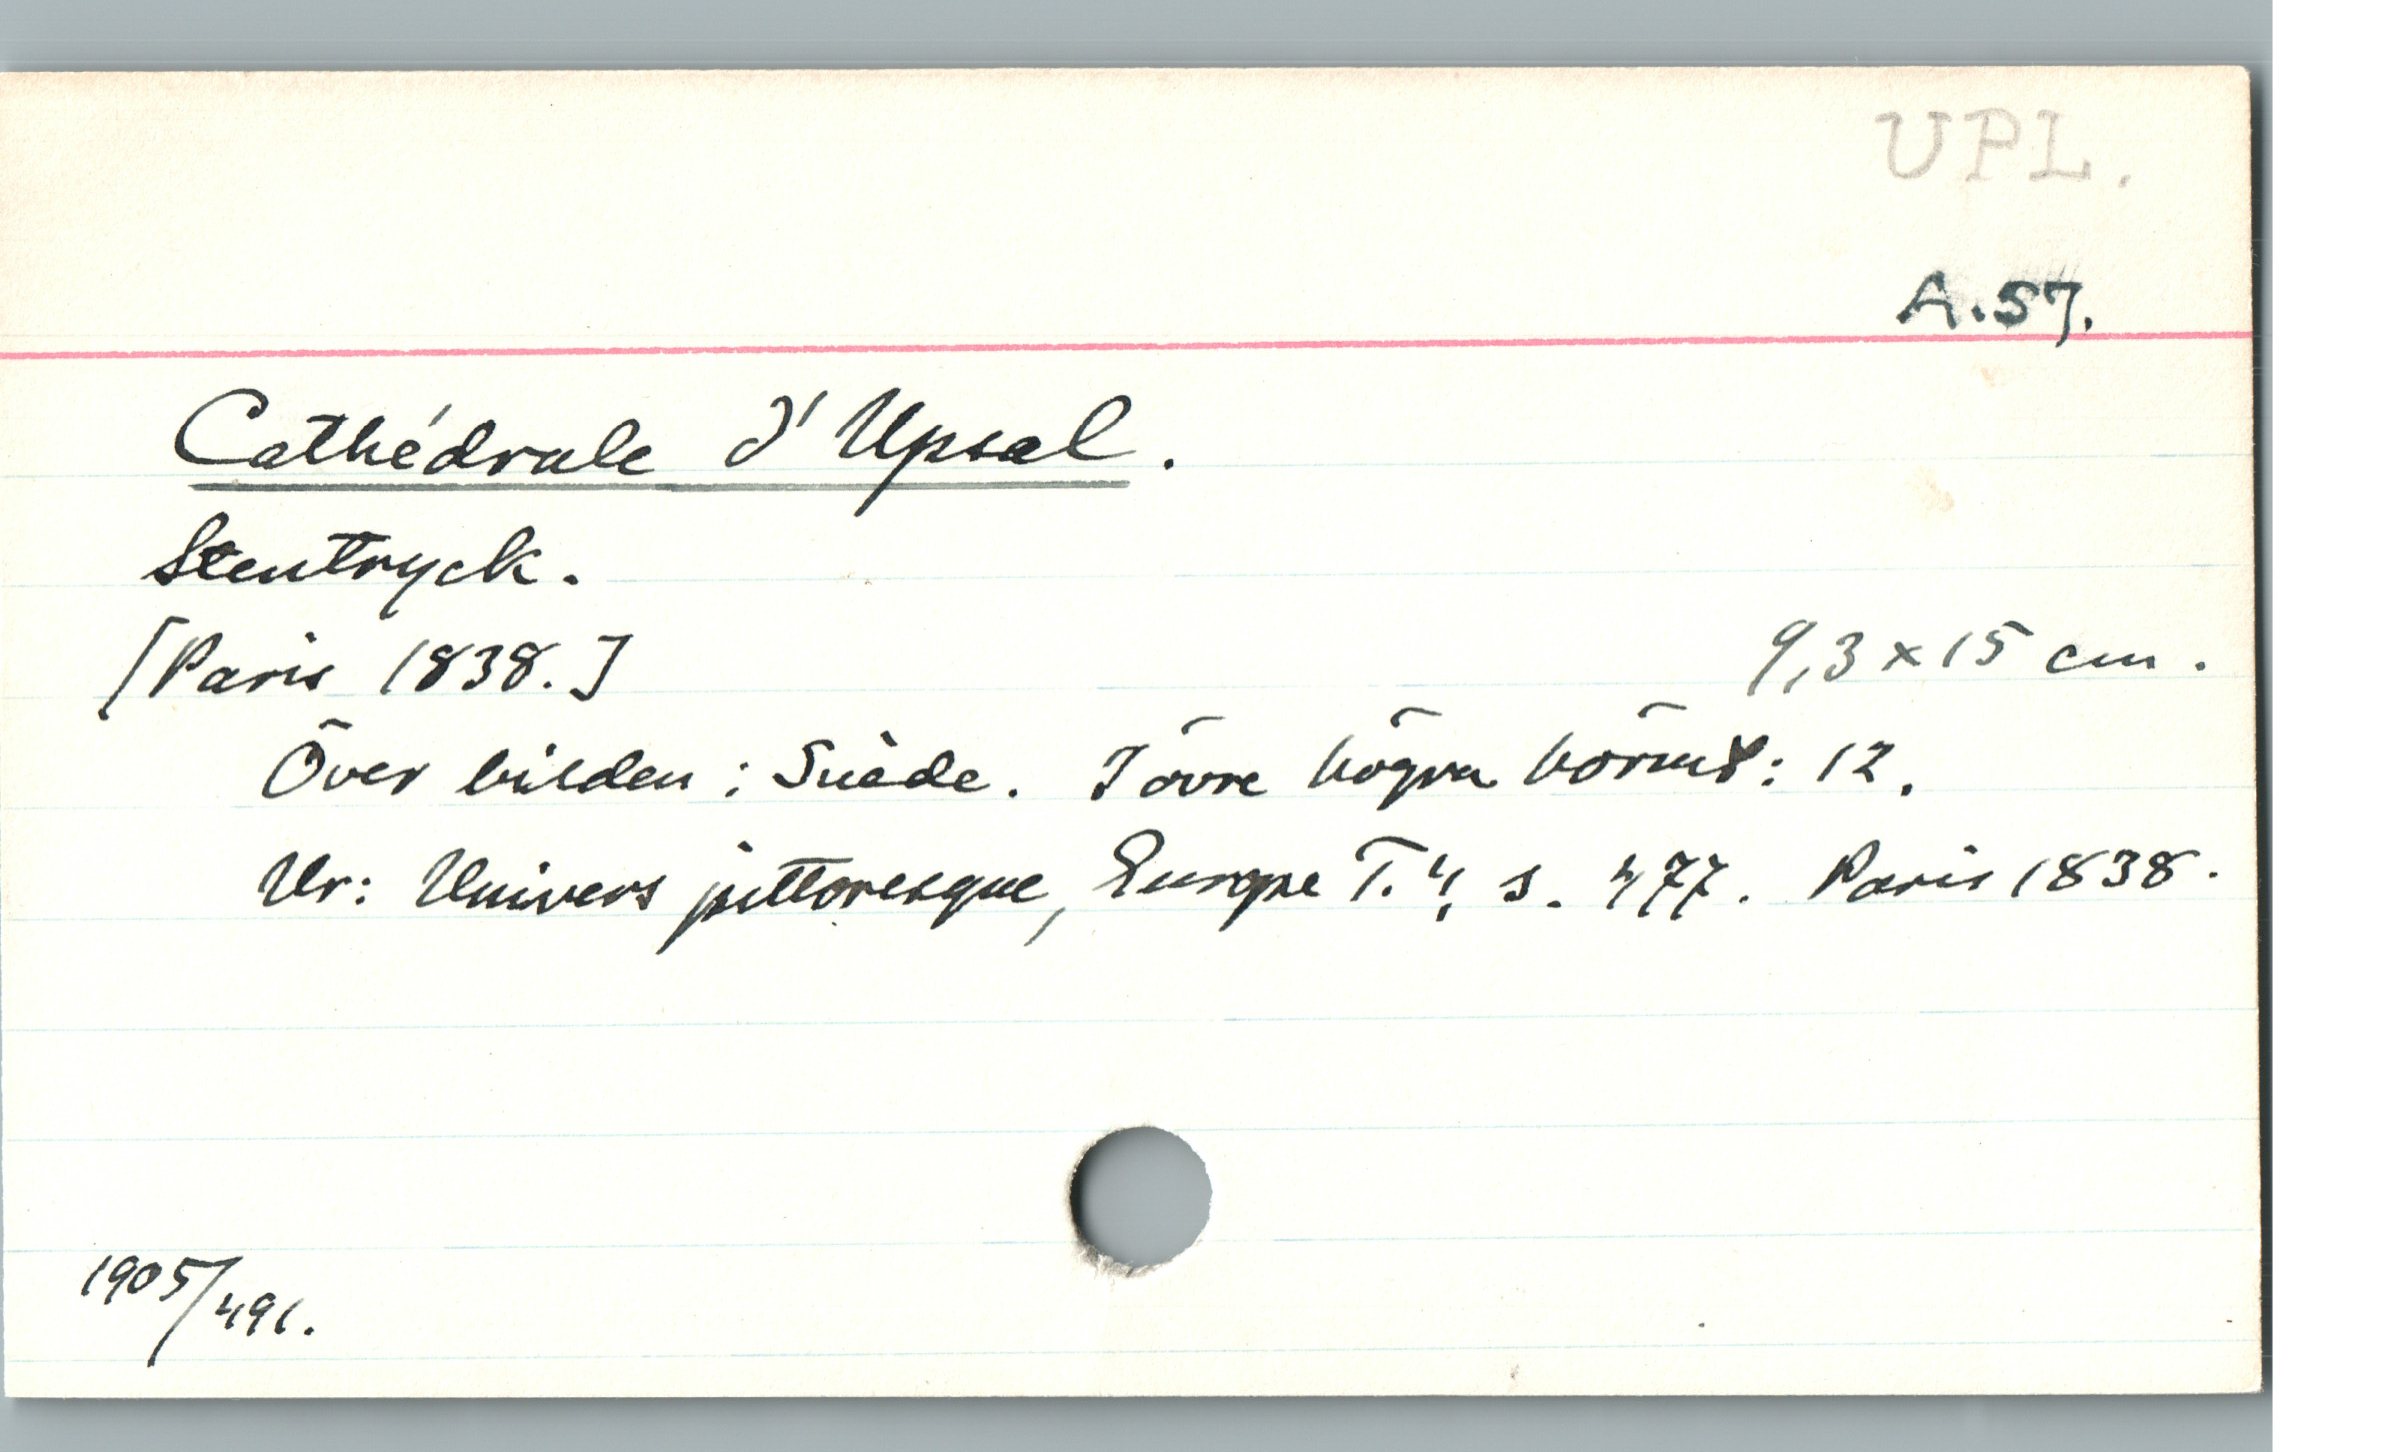 UPL.
A.57.
Cathédrale d'Upsal.
Stentryck.
[Paris 1838.] 9,3 x 15 cm.
Över bilden: Suède. I övre högra hörnet: 12.
Ur: Univers pittoresque, Europe T. 4, s. 477. Paris 1838.
1905/491.